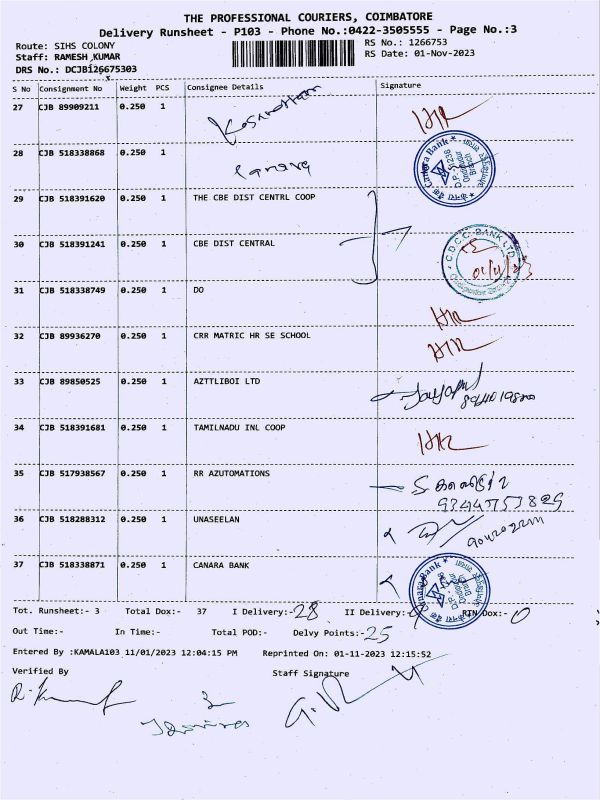 THE PROFESSIONAL COURIERS, COIMBATORE
Delivery Runsheet - P103 - Phone No.:0422-3505555 - Page No.:3
Route: SIHS COLONY RS No.: 1266753
Staff: RAMESH KUMAR RS Date: 01-Nov-2023
DRS No.: DCJB126675303
S No Consignment No Weight PCS Consignee Details Signature
27 CJB 89909211 0.250 1
28 CJB 518338868 0.250 1 canara
29 CJB 518391620 0.250 1 THE CBE DIST CENTRL COOP
30 CJB 518391241 0.250 1 CBE DIST CENTRAL
C.D.C.C. BANK LTD
01/11/23
31 CJB 518338749 0.250 1 DO
32 CJB 89936270 0.250 1 CRR MATRIC HR SE SCHOOL
33 CJB 89850525 0.250 1 AZTTLIBOI LTD
34 CJB 518391681 0.250 1 TAMILNADU INL COOP
35 CJB 517938567 0.250 1 RR AZUTOMATIONS
36 CJB 518288312 0.250 1 UNASEELAN
37 CJB 518338871 0.250 1 CANARA BANK
Canara Bank
Tot. Runsheet:- 3 Total Dox:- 37 I Delivery:- 28 II Delivery:- 9 RTN Dox:- 0
Out Time:- In Time:- Total POD:- Delvy Points:- 25
Entered By :KAMALA103 11/01/2023 12:04:15 PM Reprinted On: 01-11-2023 12:15:52
Verified By Staff Signature